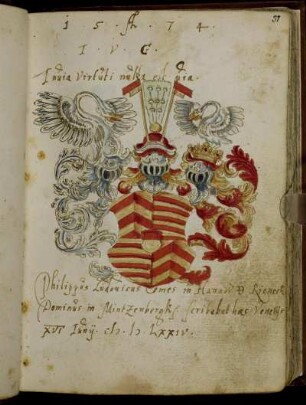 1 5 . A . 7 4 .
37
I V G .
Inuia virtuti nulla est via.
Philippus Ludouicus Comes in Hanaw & Rieneck
Dominus in Mintzenbergk / scribebat has Venetijs
XVI Junij
LXXIV.